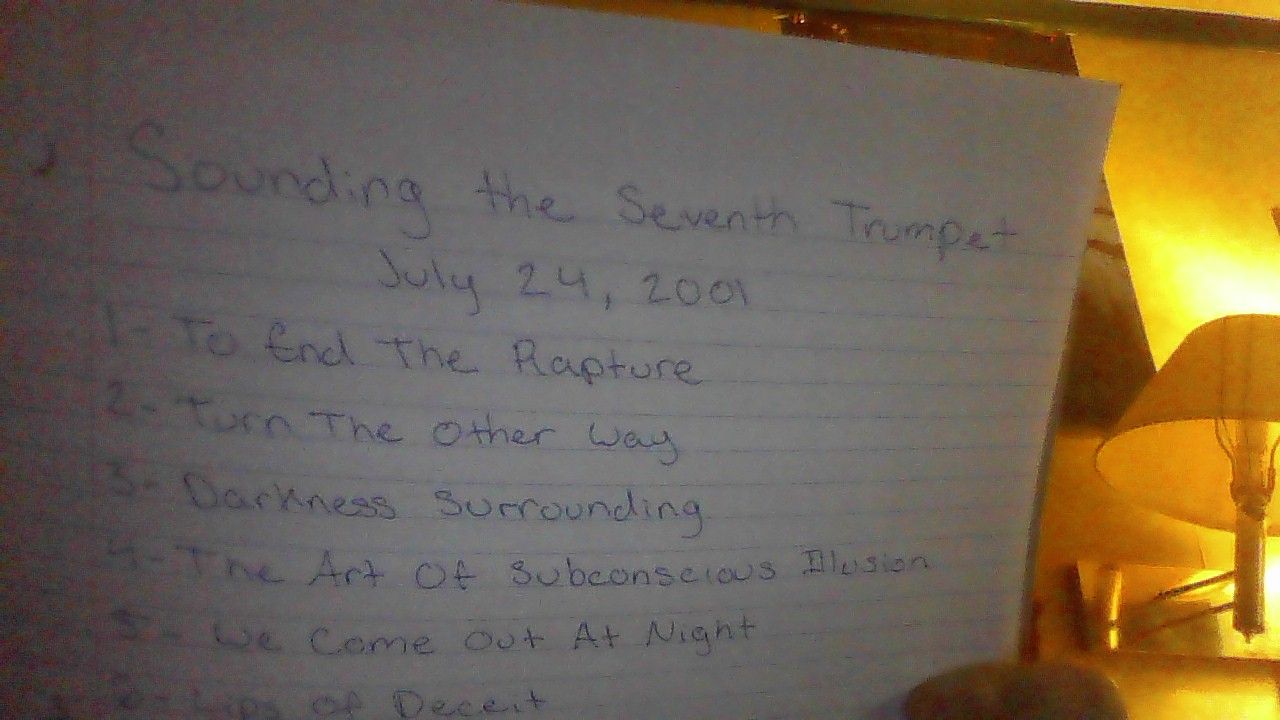 Sounding the Seventh Trumpet
July 24, 2001
1- To End The Rapture
2- Turn The Other Way
3- Darkness Surrounding
4- The Art Of Subconscious Illusion
5- We Come Out At Night
6- Lips of Deceit